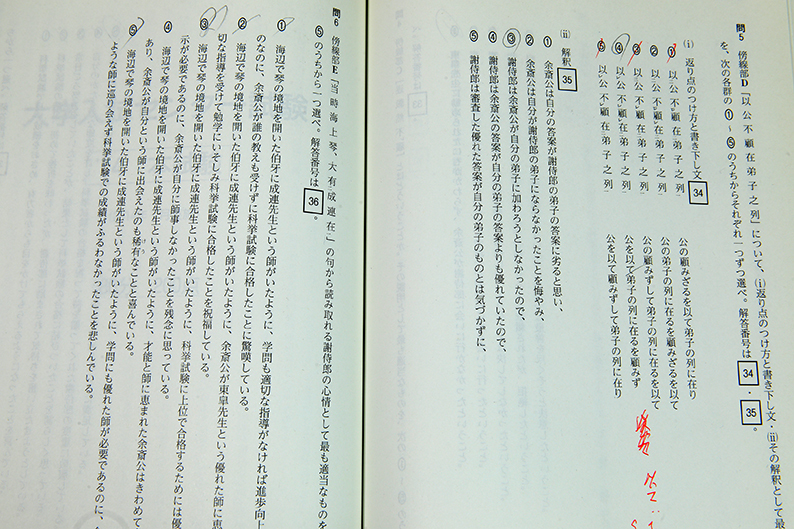 問5 傍線部D「以公不顧在弟子之列」について、(i)返り点のつけ方と書き下し文・(ii)その解釈として最
を、次の各群の①〜⑤のうちからそれぞれ一つずつ選べ。解答番号は 34 ・ 35 。
(i) 返り点のつけ方と書き下し文 34
① 以公不顧在弟子之列 公の顧みざるを以て弟子の列に在り
② 以公不顧在弟子之列 公の弟子の列に在るを顧みざるを以て
③ 以公不顧在弟子之列 公の顧みずして弟子の列に在るを以て
④ 以公不顧在弟子之列 公を以て弟子の列に在るを顧みず
⑤ 以公不顧在弟子之列 公を以て顧みずして弟子の列に在り
(ii) 解釈 35
① 余斎公は自分の答案が謝侍郎の弟子の答案に劣ると思い、
② 余斎公は自分が謝侍郎の弟子にならなかったことを悔やみ、
③ 謝侍郎は余斎公が自分の弟子に加わろうとしなかったので、
④ 謝侍郎は余斎公の答案が自分の弟子の答案よりも優れていたので、
⑤ 謝侍郎は審査した優れた答案が自分の弟子のものとは気づかずに、
問6 傍線部E「当時海上琴、大有成連在」の句から読み取れる謝侍郎の心情として最も適当なものを
のうちから一つ選べ。解答番号は 36 。
① 海辺で琴の境地を開いた伯牙に成連先生という師がいたように、学問も適切な指導がなければ進歩向上
のなのに、余斎公が誰の教えも受けずに科挙試験に合格したことに驚嘆している。
② 海辺で琴の境地を開いた伯牙に成連先生という師がいたように、余斎公が東皐先生という優れた師に恵
切な指導を受けて勉学にいそしみ科挙試験に合格したことを祝福している。
③ 海辺で琴の境地を開いた伯牙に成連先生という師がいたように、科挙試験に上位で合格するためには優
示が必要であるのに、余斎公が自分に師事しなかったことを残念に思っている。
④ 海辺で琴の境地を開いた伯牙に成連先生という師がいたように、才能と師に恵まれた余斎公はきわめて
あり、余斎公が自分という師に出会えたのも稀有なことと喜んでいる。
⑤ 海辺で琴の境地を開いた伯牙に成連先生という師がいたように、学問にも優れた師が必要であるのに、
ような師に巡り会えず科挙試験での成績がふるわなかったことを悲しんでいる。